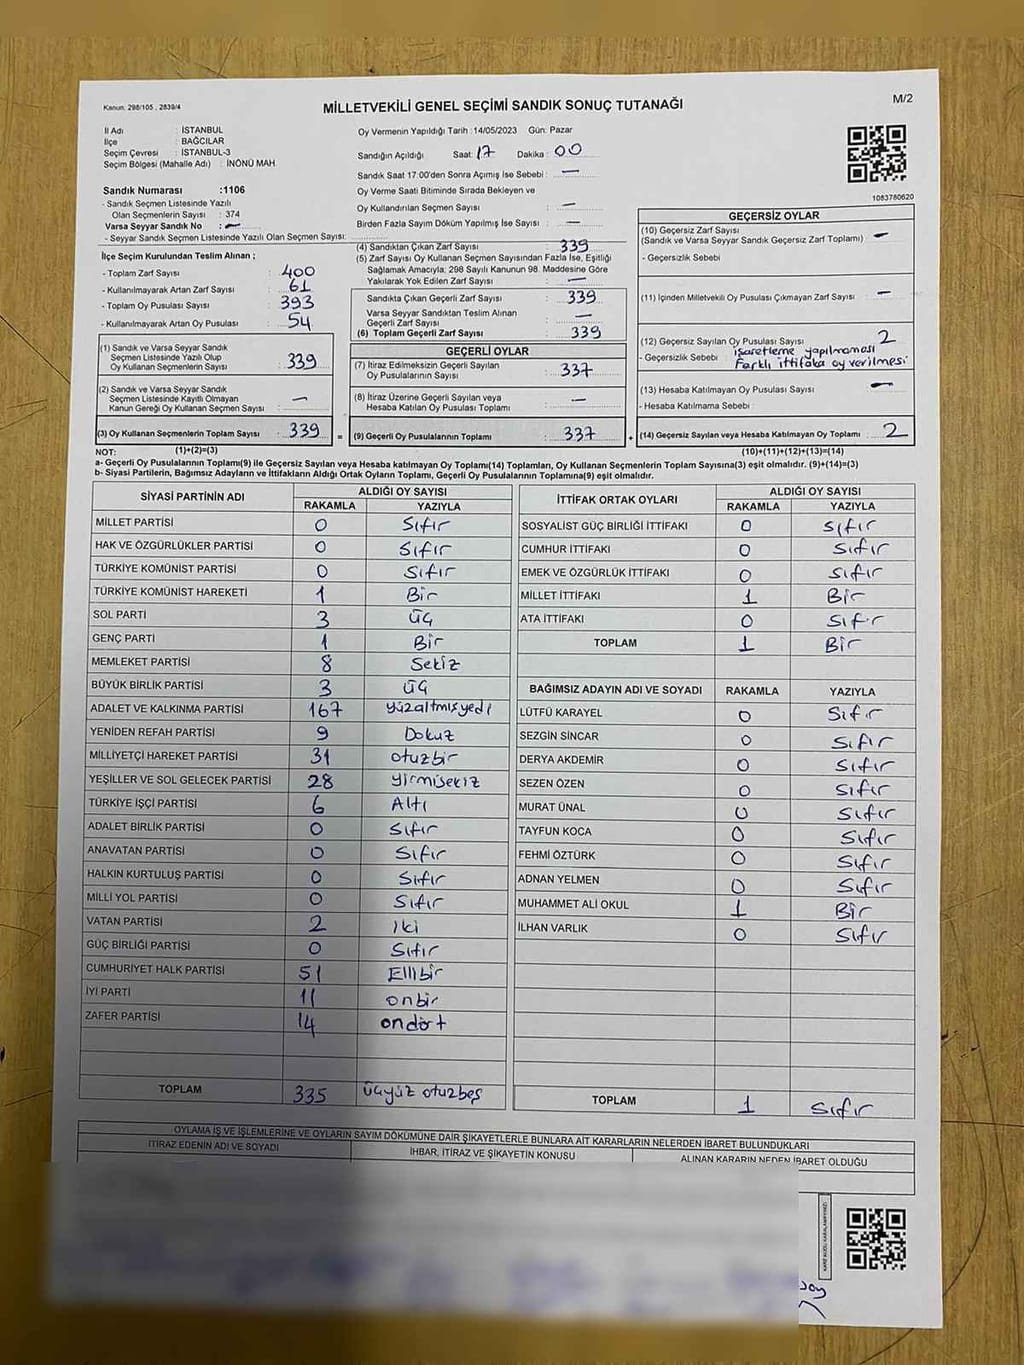 Kanun: 298/105 , 2839/4
MİLLETVEKİLİ GENEL SEÇİMİ SANDIK SONUÇ TUTANAĞI
M/2
İl Adı : İSTANBUL
İlçe : BAĞCILAR
Seçim Çevresi : İSTANBUL-3
Seçim Bölgesi (Mahalle Adı) : İNÖNÜ MAH.
Sandık Numarası :1106
- Sandık Seçmen Listesinde Yazılı
Olan Seçmenlerin Sayısı : 374
Varsa Seyyar Sandık No : —
- Seyyar Sandık Seçmen Listesinde Yazılı Olan Seçmen Sayısı:
İlçe Seçim Kurulundan Teslim Alınan ;
- Toplam Zarf Sayısı : 400
- Kullanılmayarak Artan Zarf Sayısı : 61
- Toplam Oy Pusulası Sayısı : 393
- Kullanılmayarak Artan Oy Pusulası : 54
(1) Sandık ve Varsa Seyyar Sandık
Seçmen Listesinde Yazılı Olup
Oy Kullanan Seçmenlerin Sayısı : 339
(2) Sandık ve Varsa Seyyar Sandık
Seçmen Listesinde Kayıtlı Olmayan
Kanun Gereği Oy Kullanan Seçmen Sayısı : —
(3) Oy Kullanan Seçmenlerin Toplam Sayısı : 339 =
Oy Vermenin Yapıldığı Tarih :14/05/2023 Gün: Pazar
Sandığın Açıldığı Saat: 17 Dakika : 00
Sandık Saat 17:00'den Sonra Açımış İse Sebebi : —
Oy Verme Saati Bitiminde Sırada Bekleyen ve
Oy Kullandırılan Seçmen Sayısı : —
Birden Fazla Sayım Döküm Yapılmış İse Sayısı : —
(4) Sandıktan Çıkan Zarf Sayısı : 339
(5) Zarf Sayısı Oy Kullanan Seçmen Sayısından Fazla İse, Eşitliği
Sağlamak Amacıyla; 298 Sayılı Kanunun 98. Maddesine Göre
Yakılarak Yok Edilen Zarf Sayısı : —
Sandıkta Çıkan Geçerli Zarf Sayısı : 339
Varsa Seyyar Sandıktan Teslim Alınan
Geçerli Zarf Sayısı : —
(6) Toplam Geçerli Zarf Sayısı : 339
GEÇERLİ OYLAR
(7) İtiraz Edilmeksizin Geçerli Sayılan
Oy Pusulalarının Sayısı : 337
(8) İtiraz Üzerine Geçerli Sayılan veya
Hesaba Katılan Oy Pusulası Toplamı : —
(9) Geçerli Oy Pusulalarının Toplamı : 337 +
1083780620
GEÇERSİZ OYLAR
(10) Geçersiz Zarf Sayısı
(Sandık ve Varsa Seyyar Sandık Geçersiz Zarf Toplamı) : —
- Geçersizlik Sebebi :
(11) İçinden Milletvekili Oy Pusulası Çıkmayan Zarf Sayısı : —
(12) Geçersiz Sayılan Oy Pusulası Sayısı : 2
- Geçersizlik Sebebi : işaretleme yapılmaması
Farklı ittifaka oy verilmesi
(13) Hesaba Katılmayan Oy Pusulası Sayısı : —
- Hesaba Katılmama Sebebi :
(14) Geçersiz Sayılan veya Hesaba Katılmayan Oy Toplamı : 2
NOT: (1)+(2)=(3) (10)+(11)+(12)+(13)=(14)
a- Geçerli Oy Pusulalarının Toplamı(9) ile Geçersiz Sayılan veya Hesaba katılmayan Oy Toplamı(14) Toplamları, Oy Kullanan Seçmenlerin Toplam Sayısına(3) eşit olmalıdır. (9)+(14)=(3)
b- Siyasi Partilerin, Bağımsız Adayların ve İttifakların Aldığı Ortak Oyların Toplamı, Geçerli Oy Pusulalarının Toplamına(9) eşit olmalıdır.
SİYASİ PARTİNİN ADI ALDIĞI OY SAYISI
RAKAMLA YAZIYLA
MİLLET PARTİSİ 0 Sıfır
HAK VE ÖZGÜRLÜKLER PARTİSİ 0 Sıfır
TÜRKİYE KOMÜNİST PARTİSİ 0 Sıfır
TÜRKİYE KOMÜNİST HAREKETİ 1 Bir
SOL PARTİ 3 Üç
GENÇ PARTİ 1 Bir
MEMLEKET PARTİSİ 8 Sekiz
BÜYÜK BİRLİK PARTİSİ 3 Üç
ADALET VE KALKINMA PARTİSİ 167 yüzaltmışyedi
YENİDEN REFAH PARTİSİ 9 Dokuz
MİLLİYETÇİ HAREKET PARTİSİ 31 otuzbir
YEŞİLLER VE SOL GELECEK PARTİSİ 28 yirmisekiz
TÜRKİYE İŞÇİ PARTİSİ 6 Altı
ADALET BİRLİK PARTİSİ 0 Sıfır
ANAVATAN PARTİSİ 0 Sıfır
HALKIN KURTULUŞ PARTİSİ 0 Sıfır
MİLLİ YOL PARTİSİ 0 Sıfır
VATAN PARTİSİ 2 iki
GÜÇ BİRLİĞİ PARTİSİ 0 Sıfır
CUMHURİYET HALK PARTİSİ 51 Ellibir
İYİ PARTİ 11 onbir
ZAFER PARTİSİ 14 ondört
TOPLAM 335 üçyüz otuzbeş
İTTİFAK ORTAK OYLARI ALDIĞI OY SAYISI
RAKAMLA YAZIYLA
SOSYALİST GÜÇ BİRLİĞİ İTTİFAKI 0 Sıfır
CUMHUR İTTİFAKI 0 Sıfır
EMEK VE ÖZGÜRLÜK İTTİFAKI 0 Sıfır
MİLLET İTTİFAKI 1 Bir
ATA İTTİFAKI 0 Sıfır
TOPLAM 1 Bir
BAĞIMSIZ ADAYIN ADI VE SOYADI RAKAMLA YAZIYLA
LÜTFÜ KARAYEL 0 Sıfır
SEZGİN SİNCAR 0 Sıfır
DERYA AKDEMİR 0 Sıfır
SEZEN ÖZEN 0 Sıfır
MURAT ÜNAL 0 Sıfır
TAYFUN KOCA 0 Sıfır
FEHMİ ÖZTÜRK 0 Sıfır
ADNAN YELMEN 0 Sıfır
MUHAMMET ALİ OKUL 1 Bir
İLHAN VARLIK 0 Sıfır
TOPLAM 1 Sıfır
OYLAMA İŞ VE İŞLEMLERİNE VE OYLARIN SAYIM DÖKÜMÜNE DAİR ŞİKAYETLERLE BUNLARA AİT KARARLARIN NELERDEN İBARET BULUNDUKLARI
İTİRAZ EDENİN ADI VE SOYADI İHBAR, İTİRAZ VE ŞİKAYETİN KONUSU ALINAN KARARIN NEDEN İBARET OLDUĞU